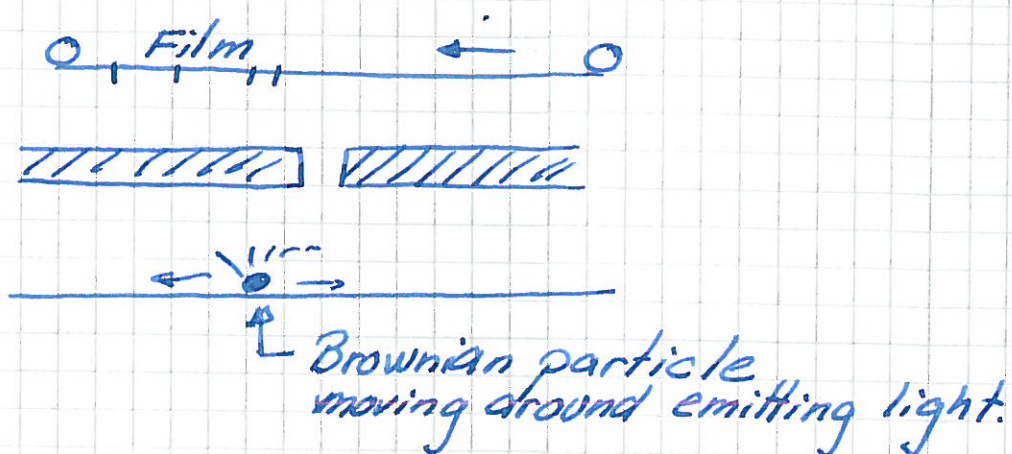 Film
Brownian particle
moving around emitting light.